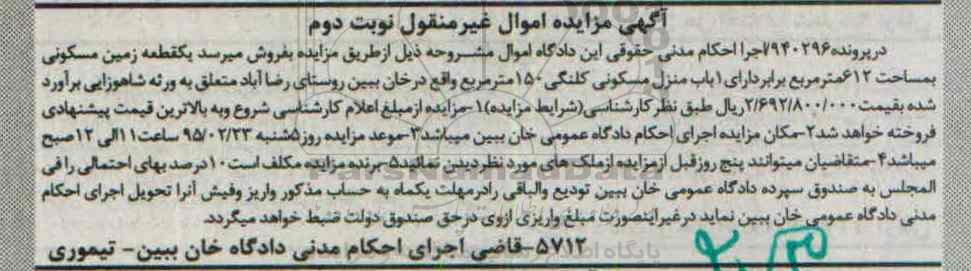 آگهی مزایده اموال غیرمنقول نوبت دوم
درپرونده۷۹۴۰۲۹۶/اجرا احکام مدنی حقوقی این دادگاه اموال مشروحه ذیل ازطریق مزایده بفروش میرسد یکقطعه زمین مسکونی
بمساحت ۶۱۲مترمربع برابردارای۱باب منزل مسکونی کلنگی ۱۵۰مترمربع واقع درخان ببین روستای رضاآباد متعلق به ورثه شاهوزایی برآورد
شده بقیمت۲/۶۹۲/۸۰۰/۰۰۰ریال طبق نظرکارشناسی(شرایط مزایده)۱-مزایده ازمبلغ اعلام کارشناسی شروع وبه بالاترین قیمت پیشنهادی
فروخته خواهد شد۲-مکان مزایده اجرای احکام دادگاه عمومی خان ببین میباشد۳-موعد مزایده روز۵شنبه ۹۵/۰۲/۲۳ ساعت۱۱الی ۱۲صبح
میباشد۴-متقاضیان میتوانند پنج روزقبل ازمزایده ازملک های مورد نظردیدن نمایند۵-برنده مزایده مکلف است۱۰درصد بهای احتمالی رافی
المجلس به صندوق سپرده دادگاه عمومی خان ببین تودیع والباقی رادرمهلت یکماه به حساب مذکور واریز وفیش آنرا تحویل اجرای احکام
مدنی دادگاه عمومی خان ببین نماید درغیراینصورت مبلغ واریزی ازوی درحق صندوق دولت ضبط خواهد میگردد.
۵۷۱۲-قاضی اجرای احکام مدنی دادگاه خان ببین- تیموری
ParsNamadData